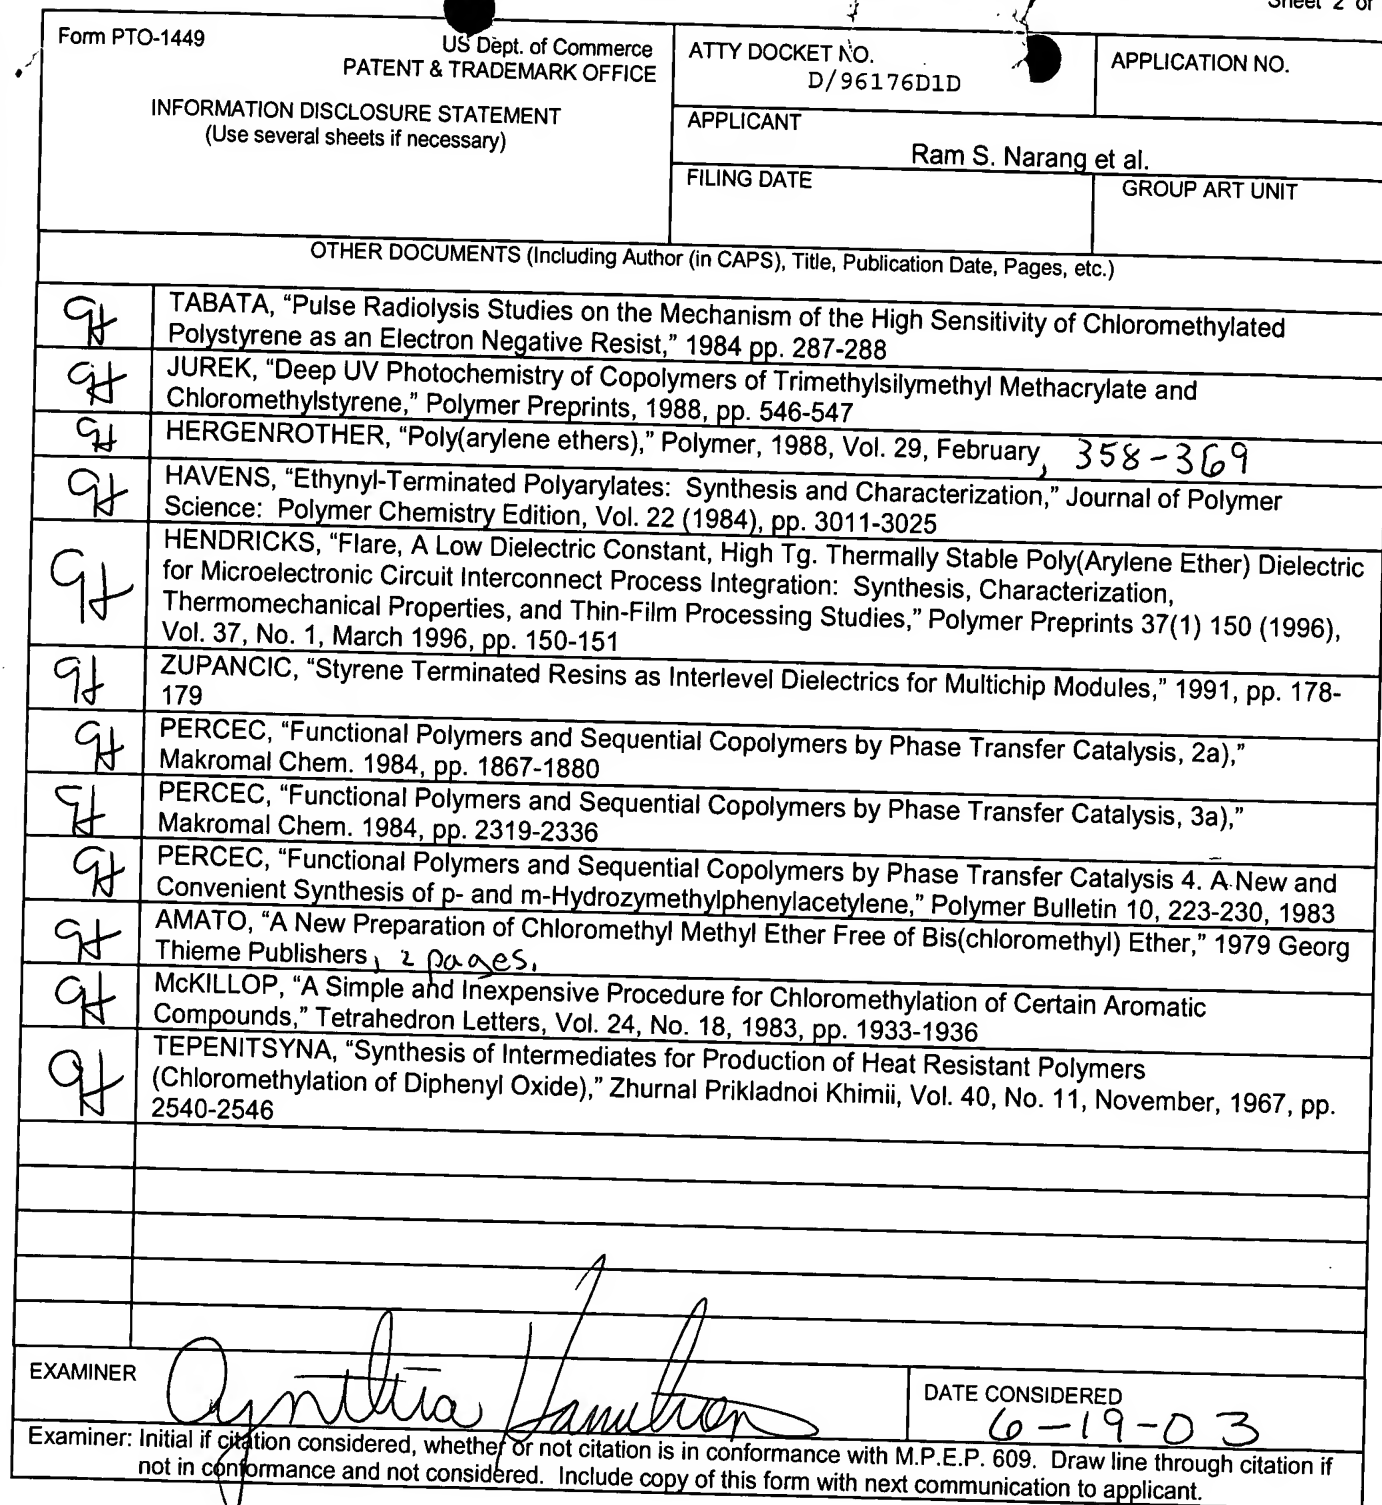 Sheet 2 of
Form PTO-1449
US Dept. of Commerce
PATENT & TRADEMARK OFFICE
INFORMATION DISCLOSURE STATEMENT
(Use several sheets if necessary)
ATTY DOCKET NO.
D/96176D1D
APPLICATION NO.
APPLICANT
Ram S. Narang et al.
FILING DATE
GROUP ART UNIT
OTHER DOCUMENTS (Including Author (in CAPS), Title, Publication Date, Pages, etc.)
CH TABATA, “Pulse Radiolysis Studies on the Mechanism of the High Sensitivity of Chloromethylated
Polystyrene as an Electron Negative Resist,” 1984 pp. 287-288
CH JUREK, “Deep UV Photochemistry of Copolymers of Trimethylsilymethyl Methacrylate and
Chloromethylstyrene,” Polymer Preprints, 1988, pp. 546-547
CH HERGENROTHER, “Poly(arylene ethers),” Polymer, 1988, Vol. 29, February, 358-369
CH HAVENS, “Ethynyl-Terminated Polyarylates: Synthesis and Characterization,” Journal of Polymer
Science: Polymer Chemistry Edition, Vol. 22 (1984), pp. 3011-3025
CH HENDRICKS, “Flare, A Low Dielectric Constant, High Tg. Thermally Stable Poly(Arylene Ether) Dielectric
for Microelectronic Circuit Interconnect Process Integration: Synthesis, Characterization,
Thermomechanical Properties, and Thin-Film Processing Studies,” Polymer Preprints 37(1) 150 (1996),
Vol. 37, No. 1, March 1996, pp. 150-151
CH ZUPANCIC, “Styrene Terminated Resins as Interlevel Dielectrics for Multichip Modules,” 1991, pp. 178-
179
CH PERCEC, “Functional Polymers and Sequential Copolymers by Phase Transfer Catalysis, 2a),”
Makromal Chem. 1984, pp. 1867-1880
CH PERCEC, “Functional Polymers and Sequential Copolymers by Phase Transfer Catalysis, 3a),”
Makromal Chem. 1984, pp. 2319-2336
CH PERCEC, “Functional Polymers and Sequential Copolymers by Phase Transfer Catalysis 4. A New and
Convenient Synthesis of p- and m-Hydrozymethylphenylacetylene,” Polymer Bulletin 10, 223-230, 1983
CH AMATO, “A New Preparation of Chloromethyl Methyl Ether Free of Bis(chloromethyl) Ether,” 1979 Georg
Thieme Publishers, 2 pages.
CH McKILLOP, “A Simple and Inexpensive Procedure for Chloromethylation of Certain Aromatic
Compounds,” Tetrahedron Letters, Vol. 24, No. 18, 1983, pp. 1933-1936
CH TEPENITSYNA, “Synthesis of Intermediates for Production of Heat Resistant Polymers
(Chloromethylation of Diphenyl Oxide),” Zhurnal Prikladnoi Khimii, Vol. 40, No. 11, November, 1967, pp.
2540-2546
EXAMINER Cynthia Hamilton
DATE CONSIDERED
6-19-03
Examiner: Initial if citation considered, whether or not citation is in conformance with M.P.E.P. 609. Draw line through citation if
not in conformance and not considered. Include copy of this form with next communication to applicant.